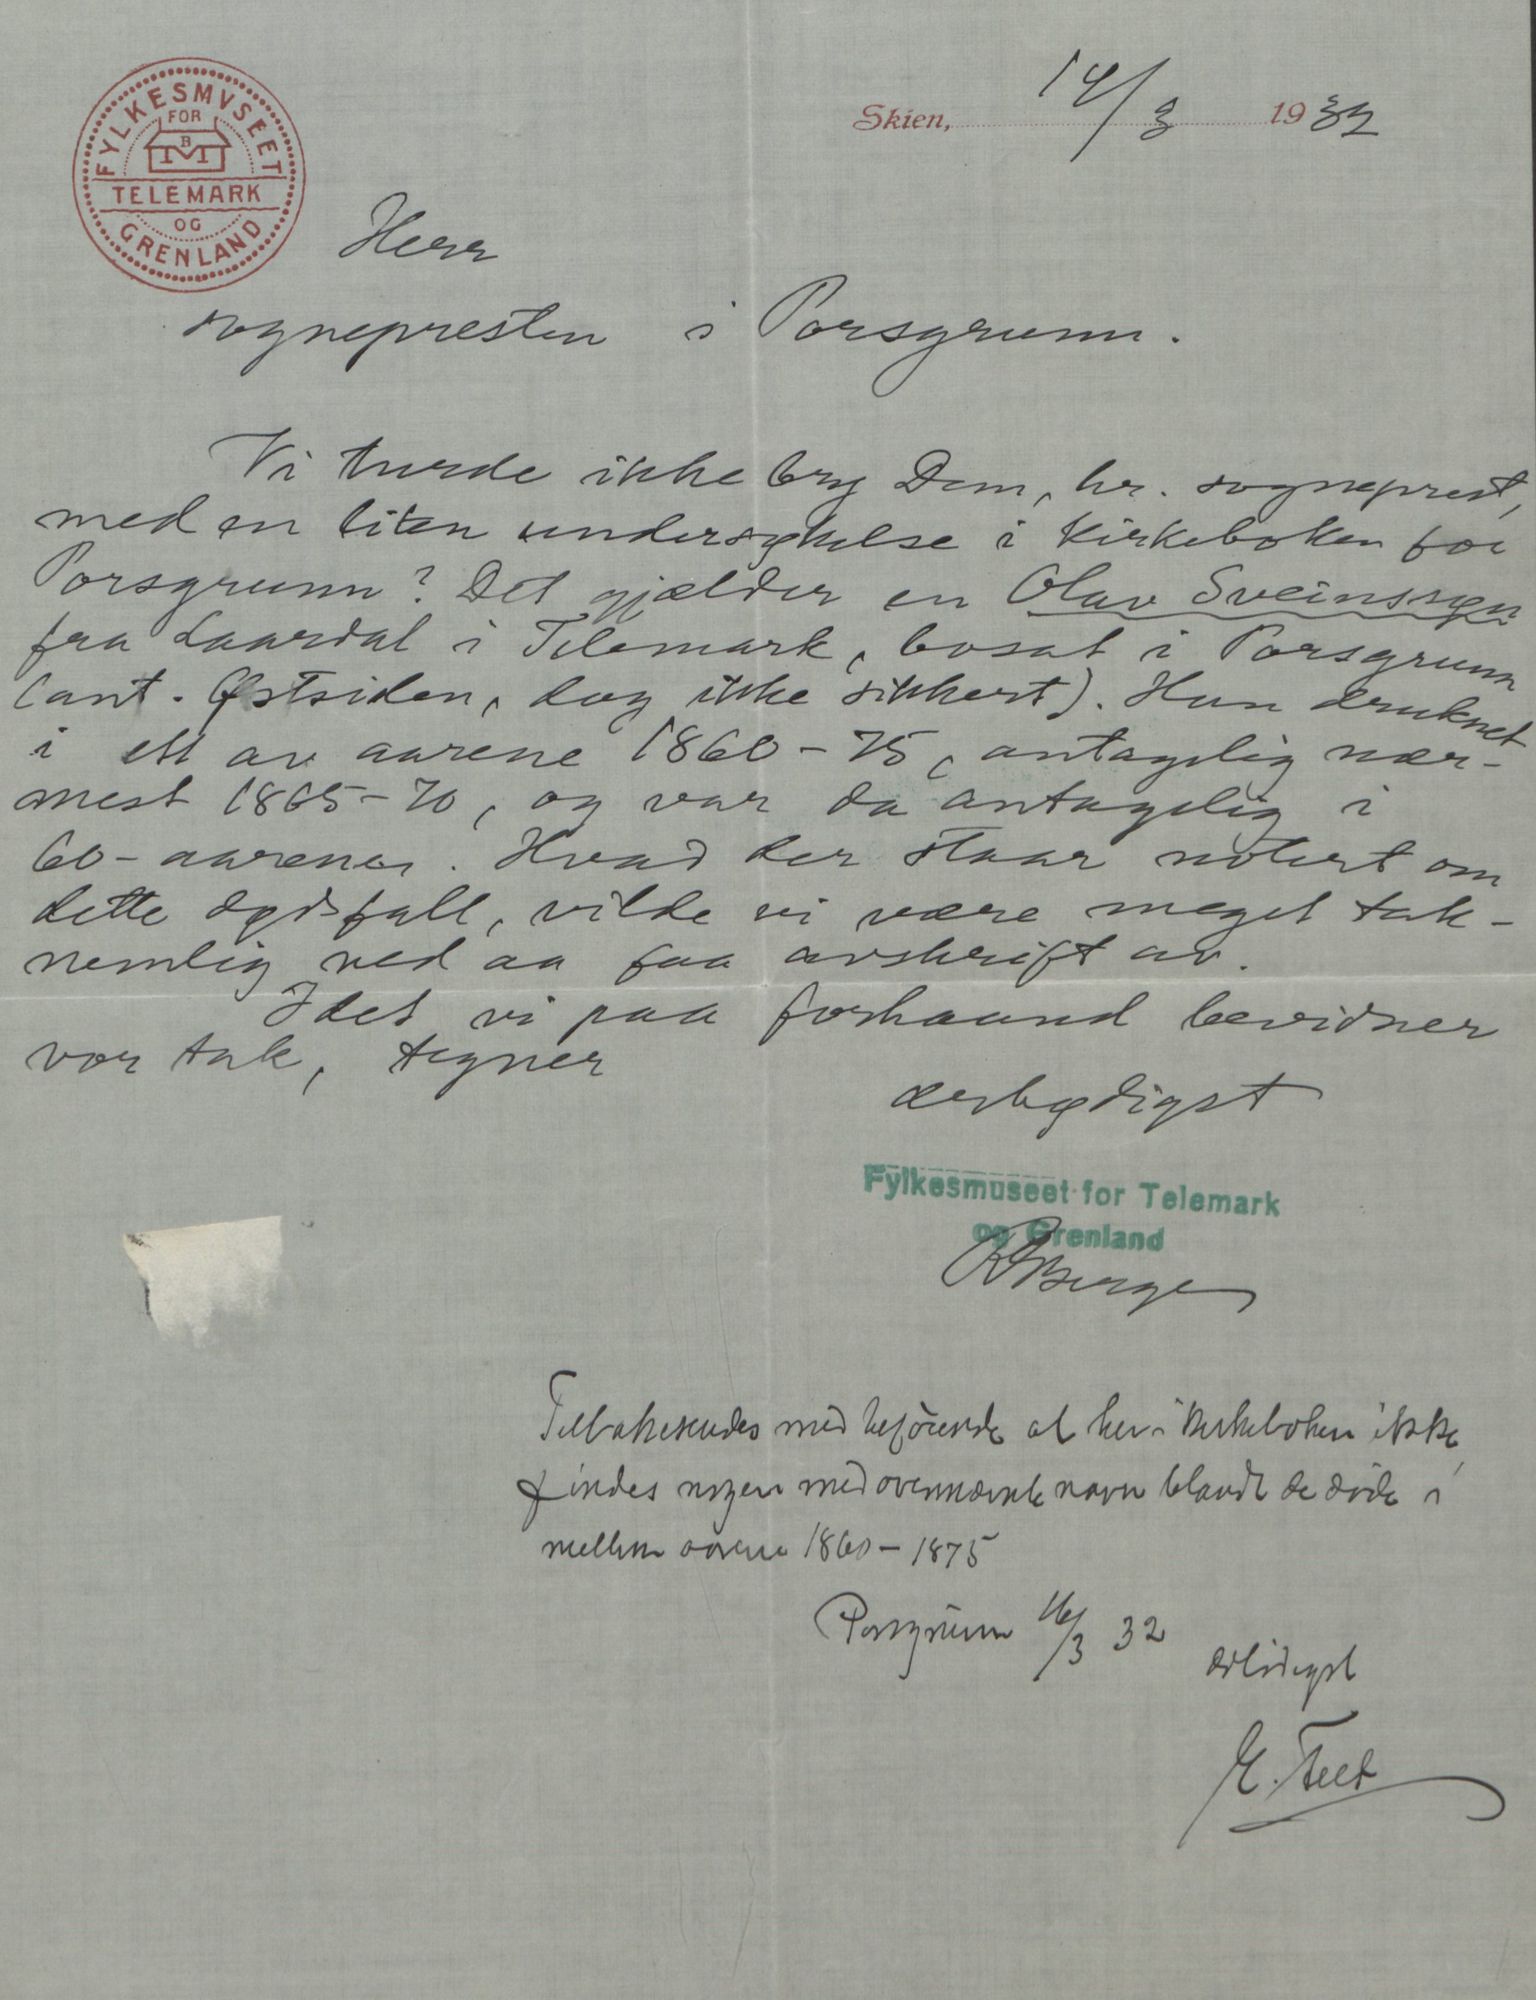 FYLKESMVSEET
FOR
BM
TELEMARK
OG
GRENLAND
Skien, 14/3 1932
Herr
sognepresten i Porsgrunn.
Vi turde ikke bry Dem, hr. sogneprest,
med en liten undersøkelse i kirkeboken for
Porsgrunn? Det gjælder en Olav Sveinssøn
fra Laardal i Telemark, bosat i Porsgrunn
(ant. Østsiden, dog ikke sikkert). Han druknet
i ett av aarene 1860-75, antagelig nær-
mest 1865-70, og var da antagelig i
60-aarene. Hvad der staar notert om
dette dødsfall, vilde vi være meget tak-
nemlig ved aa faa avskrift av.
Idet vi paa forhaand bevidner
vor tak, tegner
ærbødigst
Fylkesmuseet for Telemark
og Grenland
RBerge
Tilbakesendes med beførende at her i kirkeboken ikke
findes nogen med ovennævnte navn blandt de døde i
mellem aarene 1860-1875
Porsgrunn 16/3 32
ærbødigst
E.